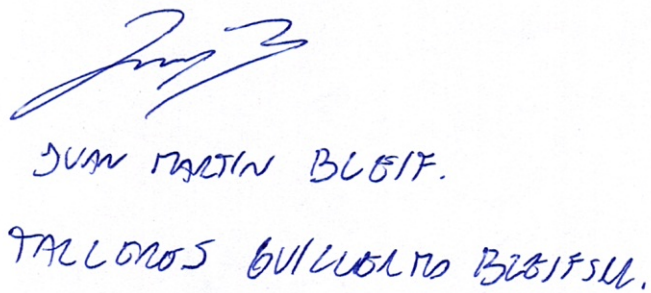 JUAN MARTIN BLEIF.
TALLERES GUILLERMO BLEIF SRL.